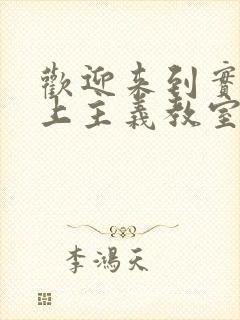 歡迎来到實
上主義教室
李鴻天